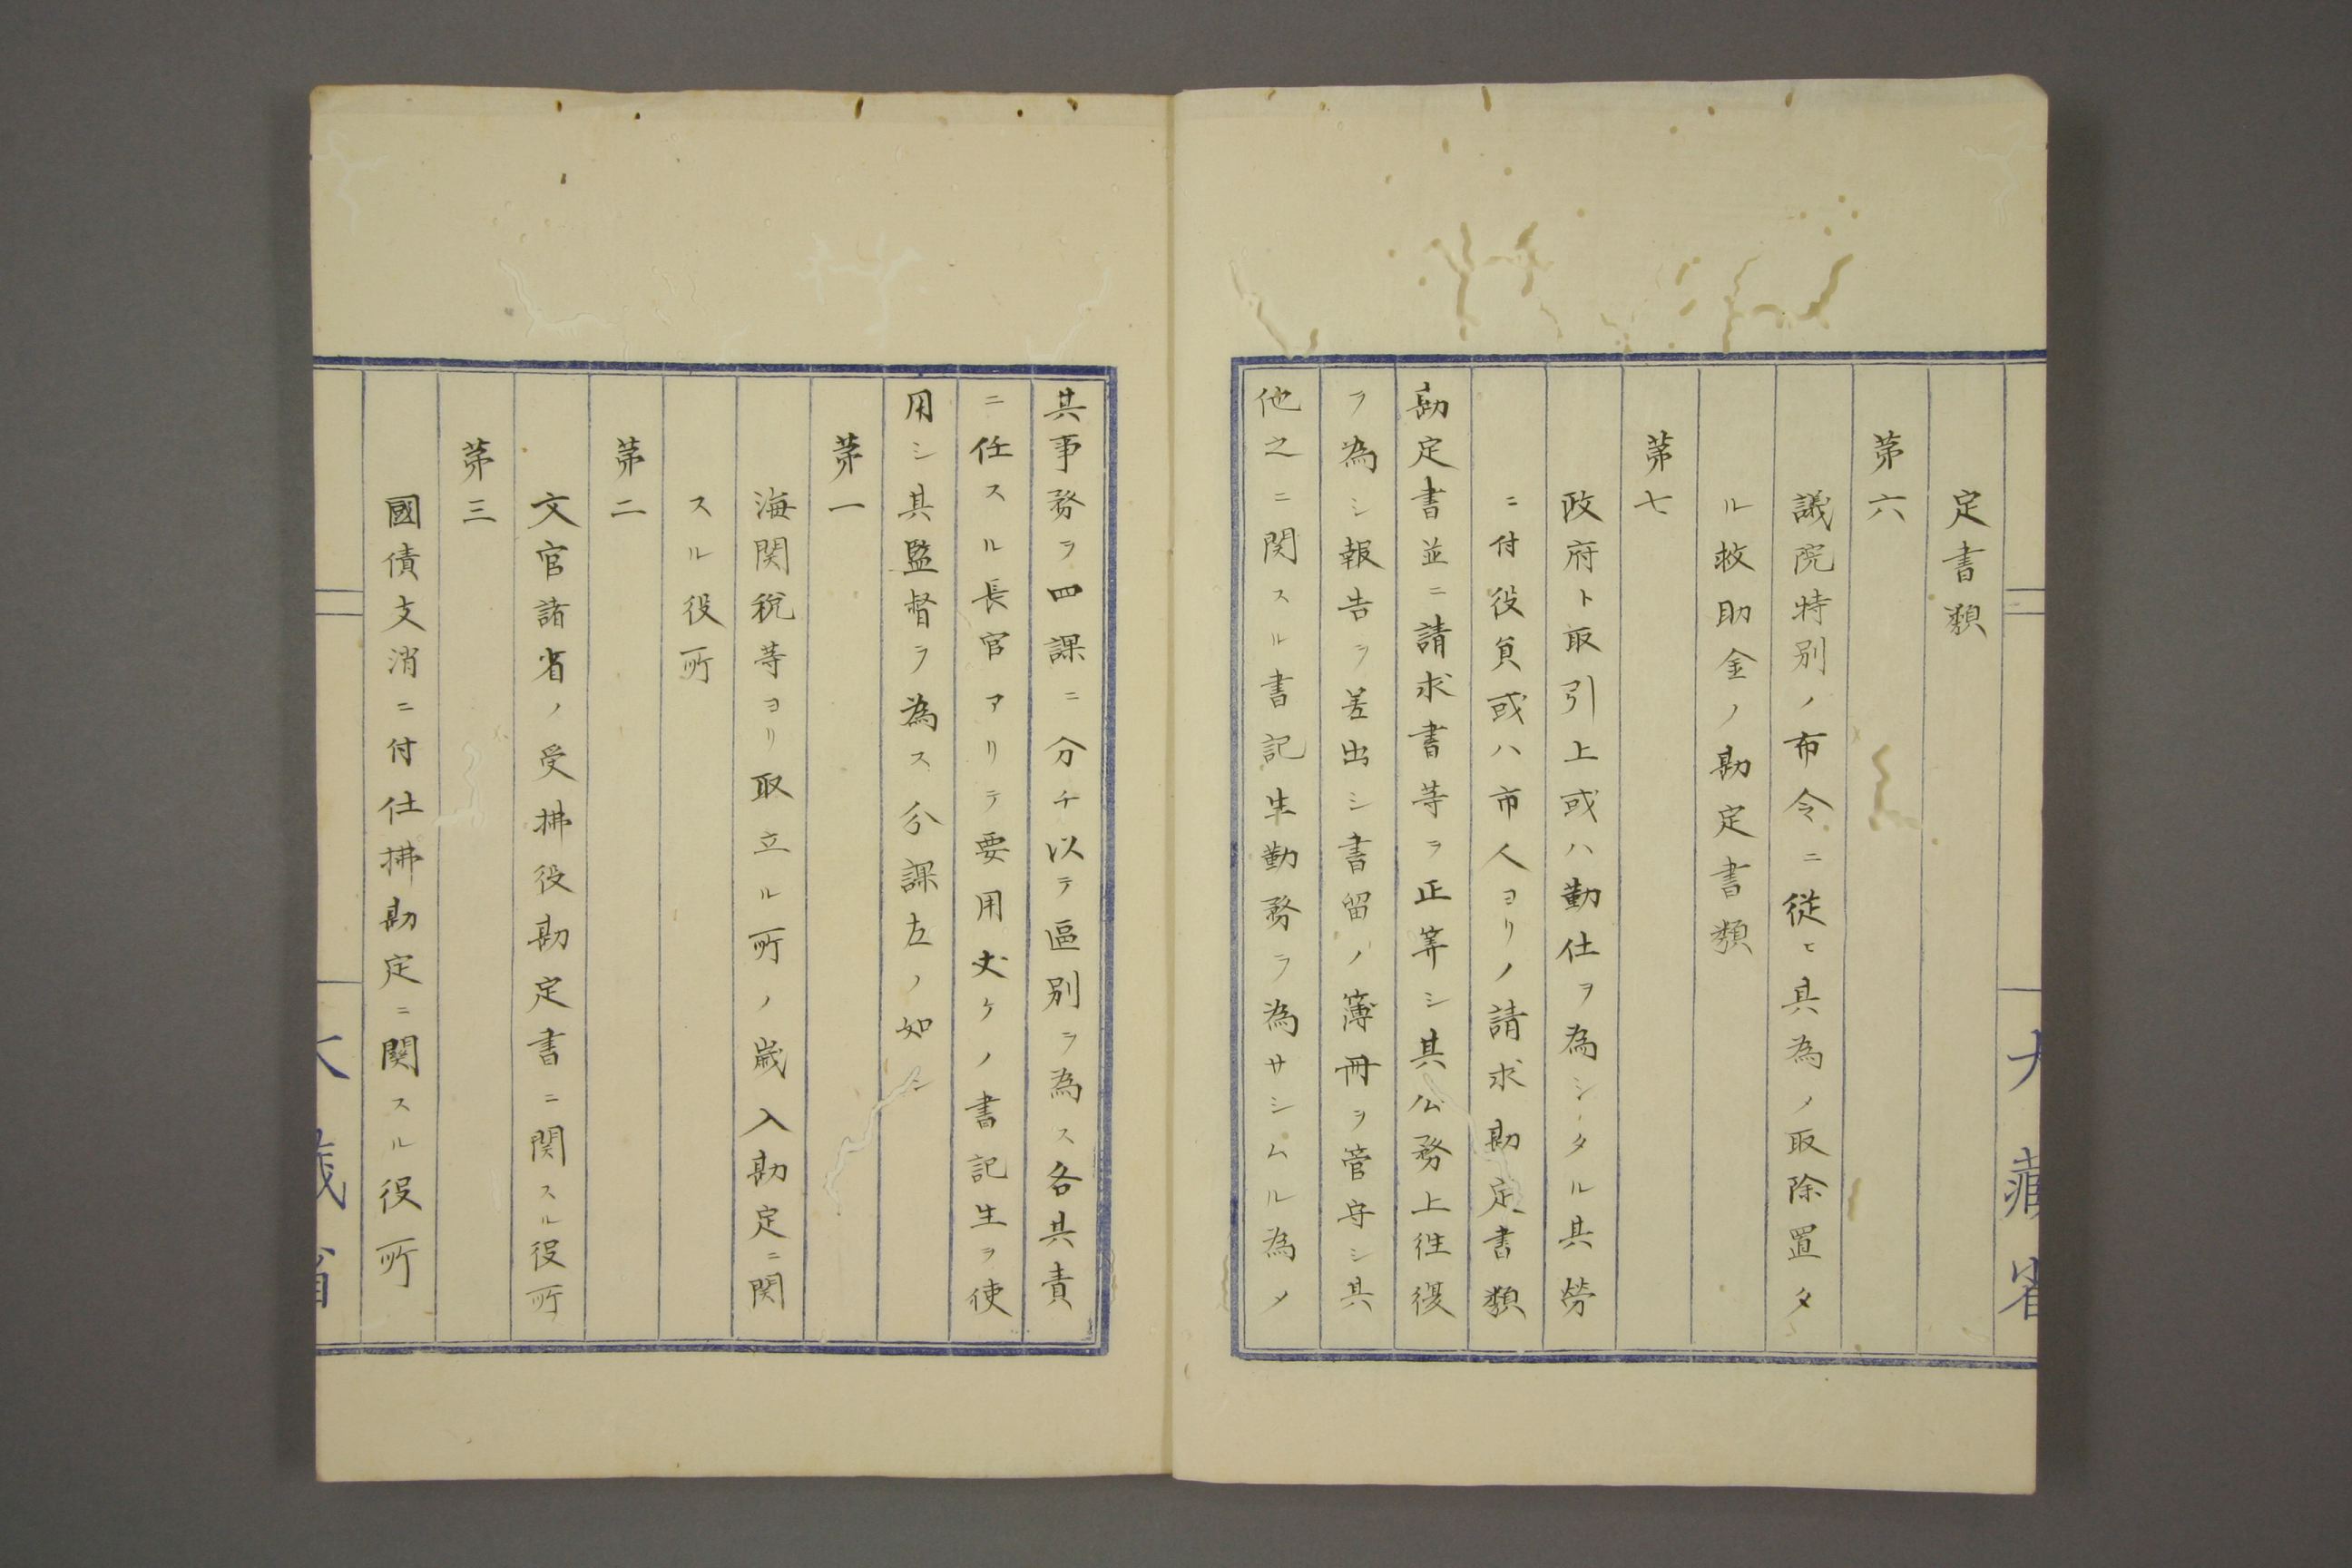 定書類
第六
議院特別ノ布令ニ従ヒ其為ノ取除置タ
ル救助金ノ勘定書類
第七
政府ト取引上或ハ勤仕ヲ為シタル其労
ニ付役負或ハ市人ヨリノ請求勘定書類
勘定書並ニ請求書等ヲ正筭シ其公務上徃復
ヲ為シ報告ヲ差出シ書留ノ簿冊ヲ管守シ其
他之ニ関スル書記生勤務ヲ為サシムル為メ
大藏省
其事務ヲ四課ニ分チ以テ區別ヲ為ス各共責
ニ任スル長官アリテ要用丈ケノ書記生ヲ使
用シ其監督ヲ為ス分課左ノ如シ
第一
海関税等ヨリ取立ル所ノ歳入勘定ニ関
スル役所
第二
文官諸省ノ受拂役勘定書ニ関スル役所
第三
國債支消ニ付仕拂勘定ニ関スル役所
大藏省